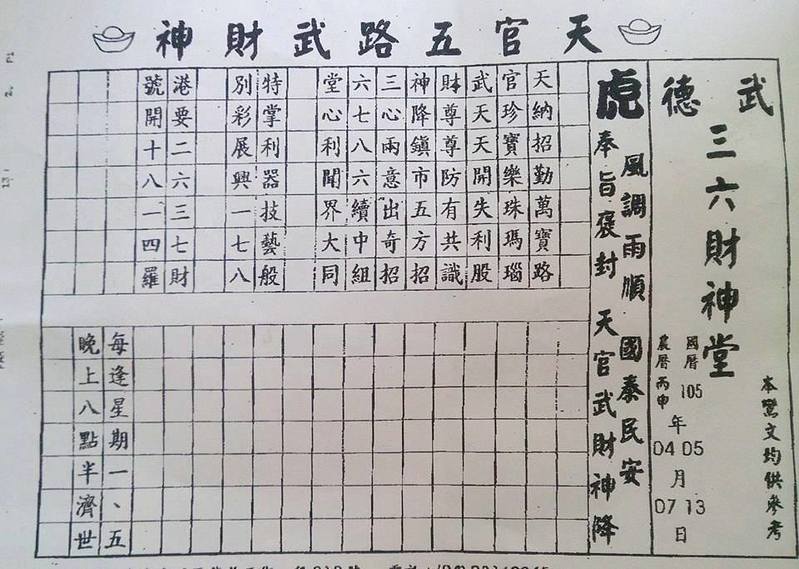 天官五路武財神
武德
三六財神堂
本鸞文均供參考
國曆 105 年 05 月 13 日
農曆丙申 年 04 月 07 日
虎
風調雨順 國泰民安
奉旨褒封 天官武財神降
天納招勤萬寶路
官珍寶樂珠瑪瑙
武天天開失利股
財尊尊防有共識
神降鎮市五方招
三心兩意出奇招
六七八六續中組
堂心利聞界大同
特掌利器技藝般
別彩展興一七八
港要二六三七財
號開十八一四羅
每逢星期一、五
晚上八點半濟世